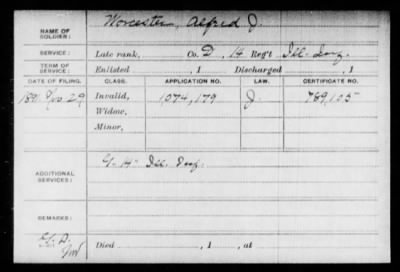 NAME OF SOLDIER: Worcester, Alfred J.
SERVICE: Late rank, Co. D, 14 Reg't Ill. Inf.
TERM OF SERVICE: Enlisted , 1 Discharged , 1
DATE OF FILING. CLASS. APPLICATION NO. LAW. CERTIFICATE NO.
189 29 Invalid, 1,074,179 J. 789,105
Widow,
Minor,
ADDITIONAL SERVICES: 14 Ill. Inf.
REMARKS:
Died , 1 , at